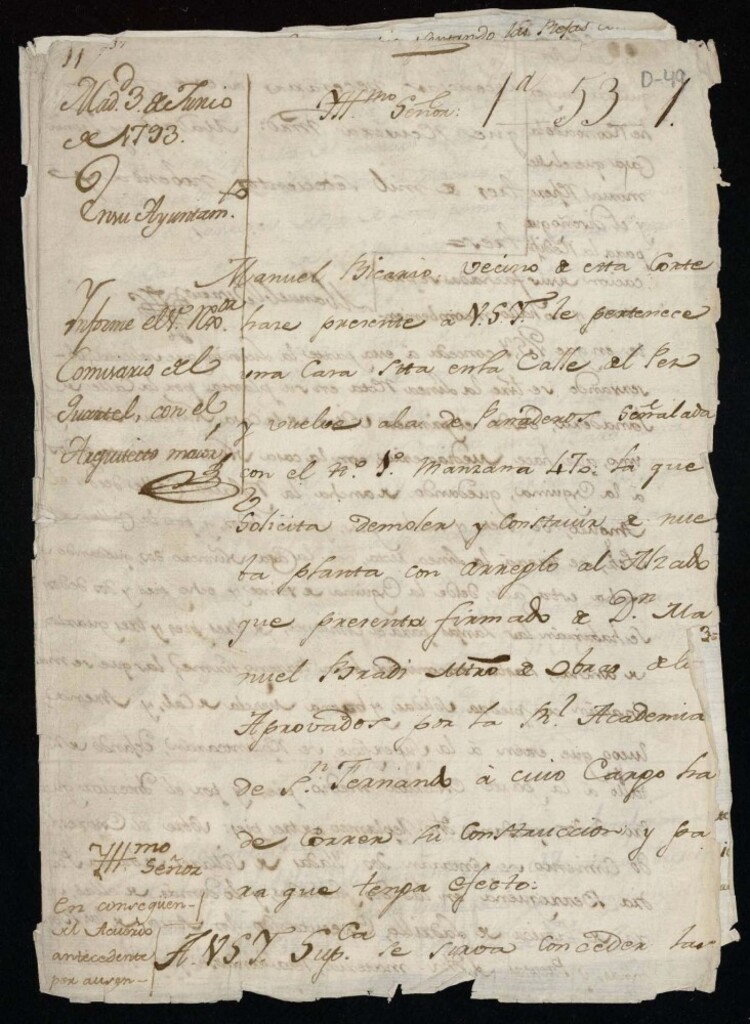 11
D-49
Mad.d 3. de Junio
de 1793.
En su Ayuntam.to
Informe el S.r
Comisario del
Quartel, con el
Arquitecto maior
Yll.mo
Señor:
1 d 53 1.
Manuel Vicario, vecino de esta Corte
hace presente a V.S.Y. le pertenece
una Casa sita en la Calle del Pez
y vuelve a la de Panaderos señalada
con el n.o 1.o Manzana 470. la que
Solicita demoler y Construir de nue
ba planta con arreglo al Alzado
que presenta firmado de D.n Ma
nuel Bradi Mtro de Obras de los
Aprovados por la R.l Academia
de S.n Fernando à cuio Cargo ha
de Correr su Construccion y pa
ra que tenga efecto:
A V.S.Y. Sup.ca se sirva conceder la
Yll.mo
Señor
En consequen-
al Acuerdo
antecedente
por ausen-